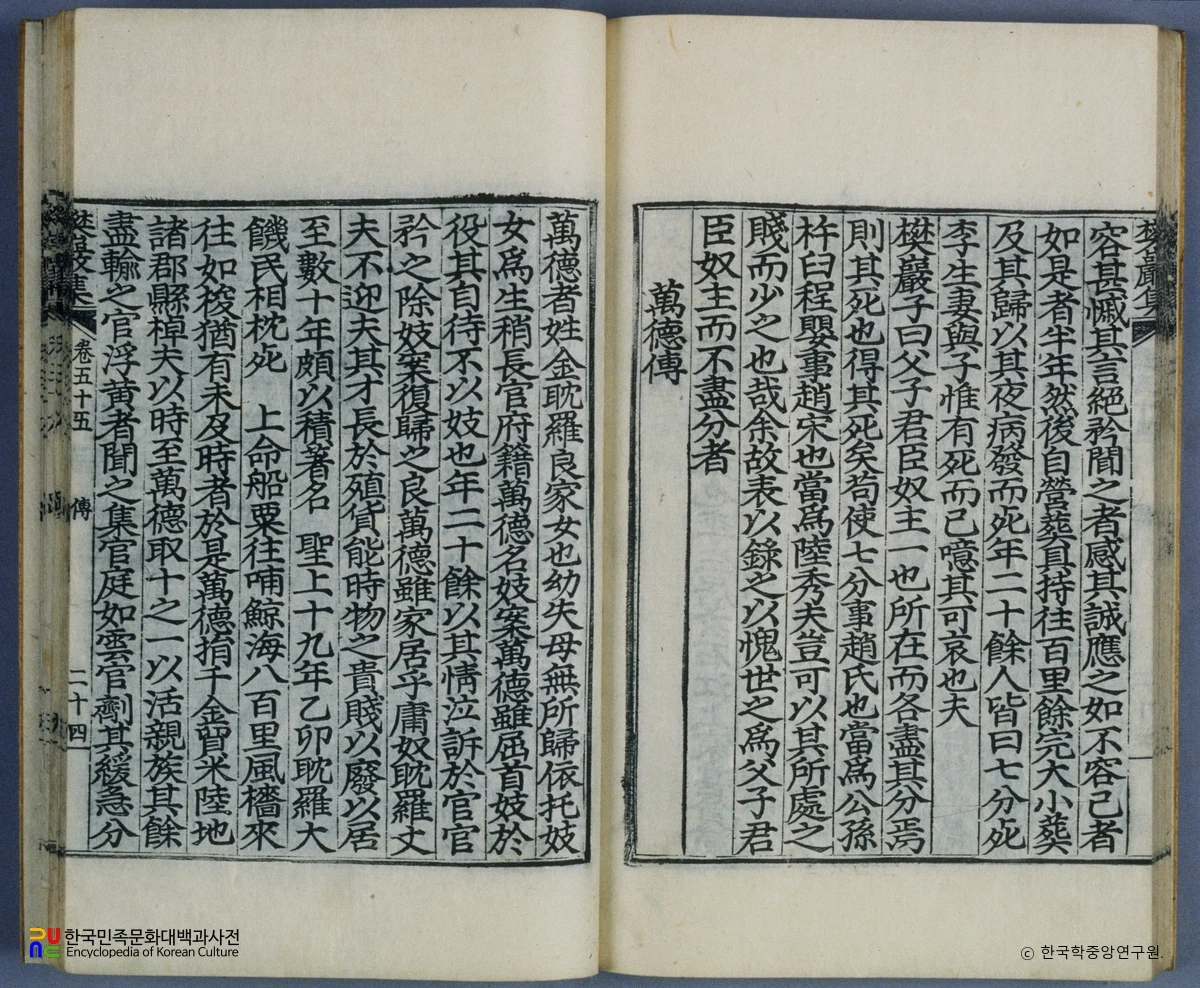 樊巖集
容甚慽其言絕矜聞之者感其誠應之如不容己者
如是者半年然後自營葬具持往百里餘完大小葬
及其歸以其夜病發而死年二十餘人皆曰七分死
李生妻與子惟有死而已噫其可哀也夫
樊巖子曰父子君臣奴主一也所在而各盡其分焉
則其死也得其死矣苟使七分事趙氏也當爲公孫
杵臼程嬰事趙宋也當爲陸秀夫豈可以其所處之
賤而少之也哉余故表以錄之以愧世之爲父子君
臣奴主而不盡分者
萬德傳
萬德者姓金耽羅良家女也幼失母無所歸依托妓
女爲生稍長官府籍萬德名妓案萬德雖屈首妓於
役其自待不以妓也年二十餘以其情泣訴於官官
矜之除妓案復歸之良萬德雖家居乎庸奴耽羅丈
夫不迎夫其才長於殖貨能時物之貴賤以廢以居
至數十年頗以積著名 聖上十九年乙卯耽羅大
饑民相枕死 上命船粟往哺鯨海八百里風檣來
往如梭猶有未及時者於是萬德捐千金貿米陸地
諸郡縣棹夫以時至萬德取十之一以活親族其餘
盡輸之官浮黃者聞之集官庭如雲官劑其緩急分
樊巖集 卷五十五 傳 二十四
한국민족문화대백과사전
Encyclopedia of Korean Culture
© 한국학중앙연구원.